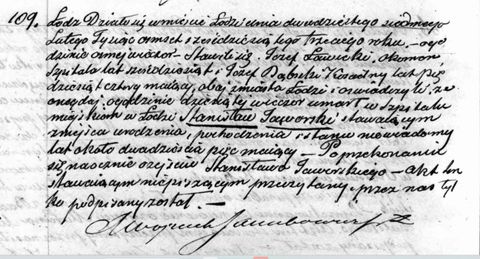 109. Łodz Działo się w mieście Łodzi dnia dwudziestego siodmego
Lutego Tysiąc ośmset sześćdziesiątego trzeciego roku, o go
dzinie osmej wieczor. Stawili się Jozef Ławicki, ekonom
Szpitala lat sześćdziesiąt i Jozef Dąbski Stroż lat pię
dziesiąt cztery maiący, obaj z miasta Łodzi i oswiadczyli, że
onegdaj o godzinie dziesiątej wieczor umarł w Szpitalu
miejskim w Łodzi Stanisław Jaworski stawaiącym
z miejsca urodzenia, pochodzenia i stanu niewiadomy
lat około dwadzieścia pięć maiący — Po przekonaniu
się naocznie o zejściu Stanisława Jaworskiego — akt ten
stawaiącym niepiszącym przeczytany, przez nas tyl
ko podpisany został. —
X Wojciech Jakubowicz